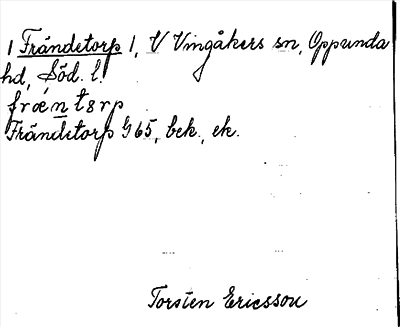 1 Frändetorp 1, V Vingåkers sn, Oppunda
hd, Söd. l.
fræ̀ntərp
Frändetorp G65, bek., ek.
Torsten Ericsson